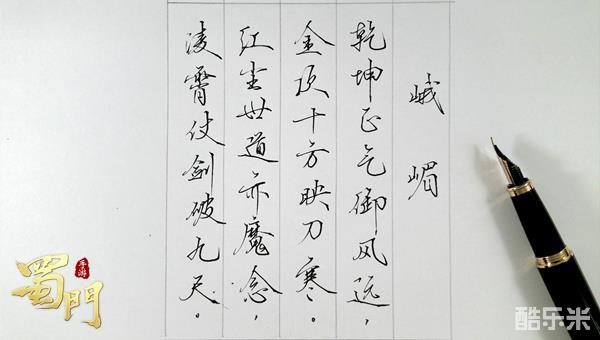 峨嵋
乾坤正气御风远，
金顶十方映刀寒。
红尘世道亦魔念，
凌霄仗剑破九天。
蜀門
手游
酷乐米